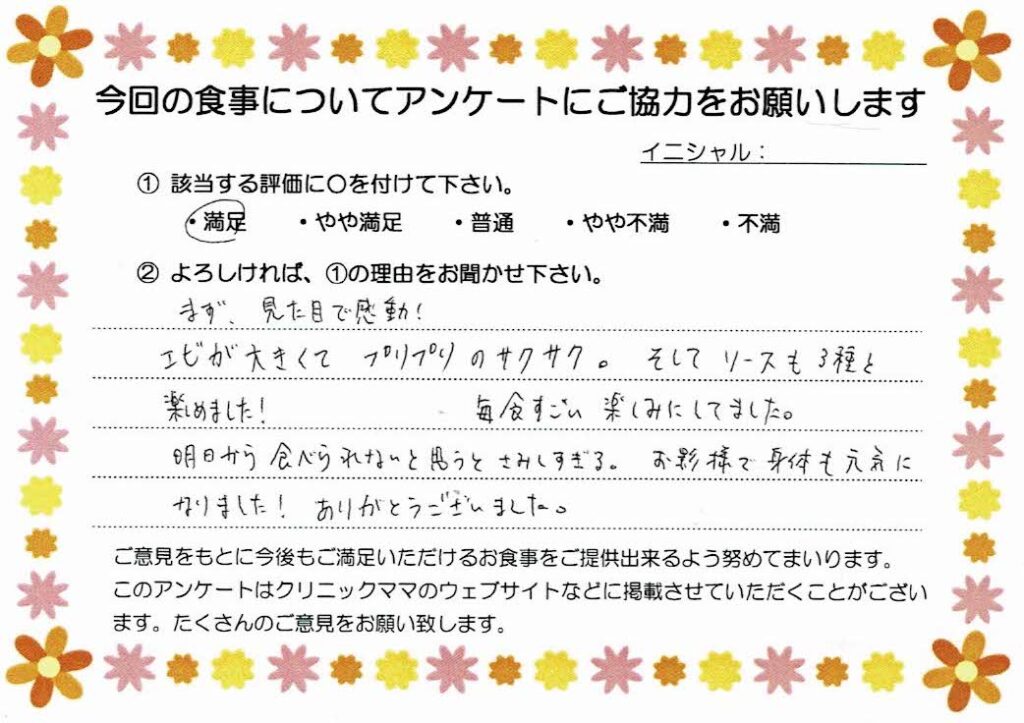 今回の食事についてアンケートにご協力をお願いします
イニシャル：
① 該当する評価に〇を付けて下さい。
・満足 ・やや満足 ・普通 ・やや不満 ・不満
② よろしければ、①の理由をお聞かせ下さい。
まず、見た目で感動！
エビが大きくて プリプリのサクサク。 そして ソースも3種と
楽しめました！ 毎食すごい 楽しみにしてました。
明日から食べられないと思うとさみしすぎる。 お影様で身体も元気に
なりました！ ありがとうございました。
ご意見をもとに今後もご満足いただけるお食事をご提供出来るよう努めてまいります。
このアンケートはクリニックママのウェブサイトなどに掲載させていただくことがござい
ます。たくさんのご意見をお願い致します。